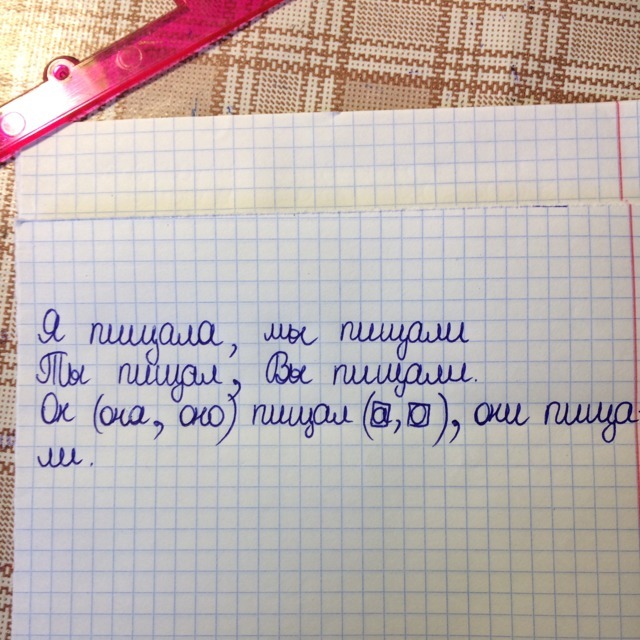 Я пищала, мы пищали
Ты пищал, Вы пищали.
Он (она, оно) пищал (а, о), они пища-
ли.